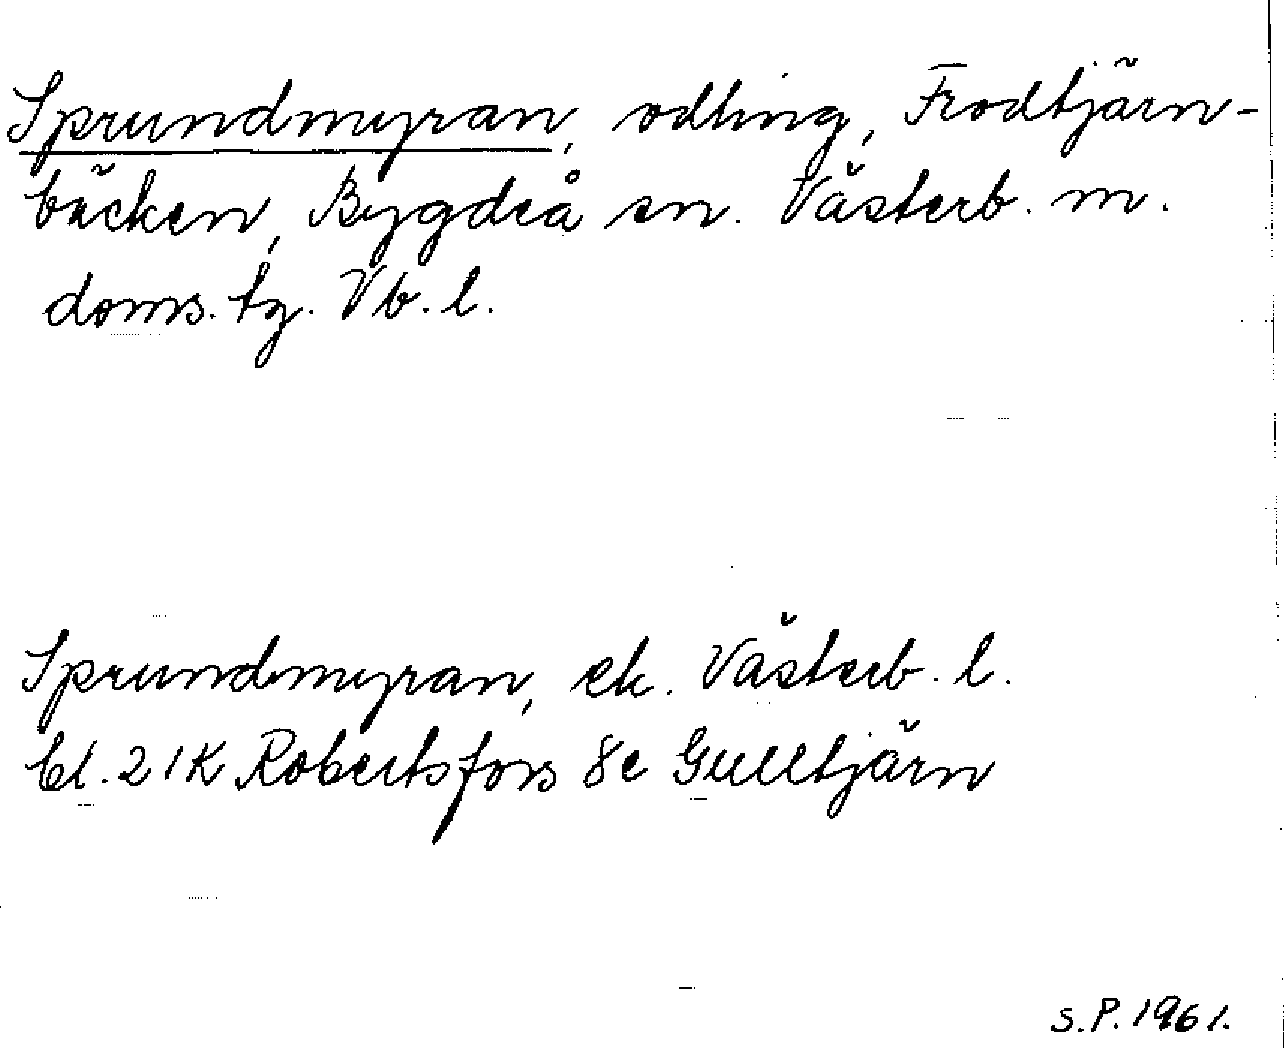 Sprundmyran, odling, Frodtjärn-
bäcken, Bygdeå sn. Västerb. m.
doms. tg. Vb. l.
Sprundmyran, ek. Västerb. l.
bl. 21K Robertsfors 8e Gulltjärn
S.P. 1961.